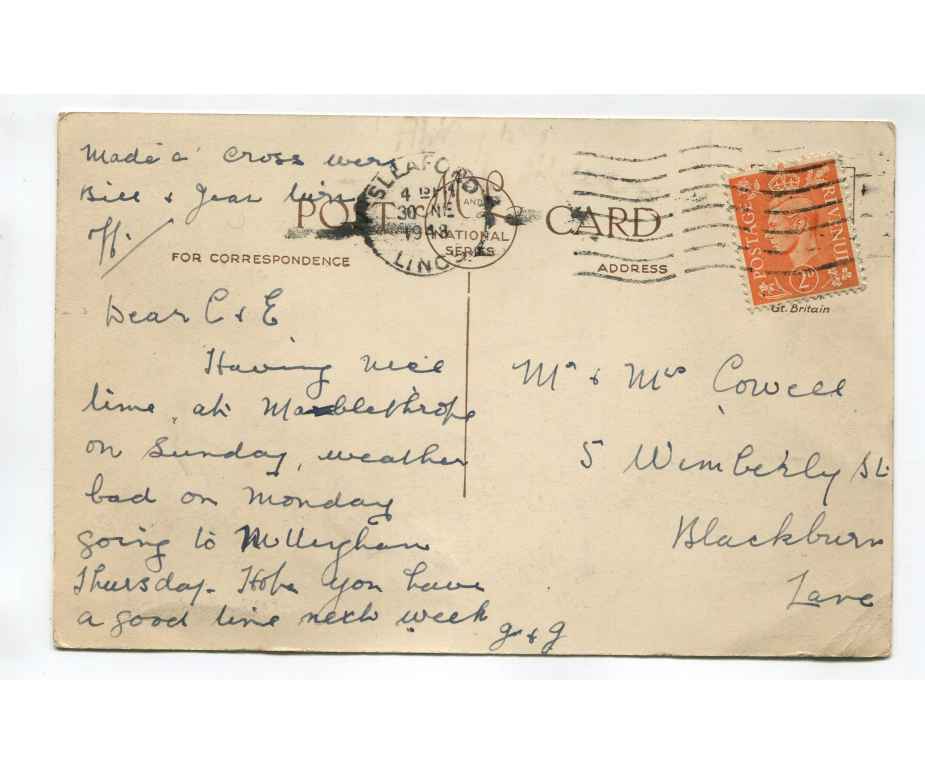 Made a cross were
Bill & Jean
off.
POST CARD
SLEAFORD
4 PM
30 JNE
1948
LINCS
AND
NATIONAL
SERIES
POSTAGE REVENUE
2D
FOR CORRESPONDENCE
ADDRESS
Gt. Britain
Dear C & E
Having nice
time at Mablethrope
on Sunday, weather
bad on Monday
going to
Thursday. Hope you have
a good time next week
g & g
Mr & Mrs Cowell
5 Wimberly St.
Blackburn
Lanc